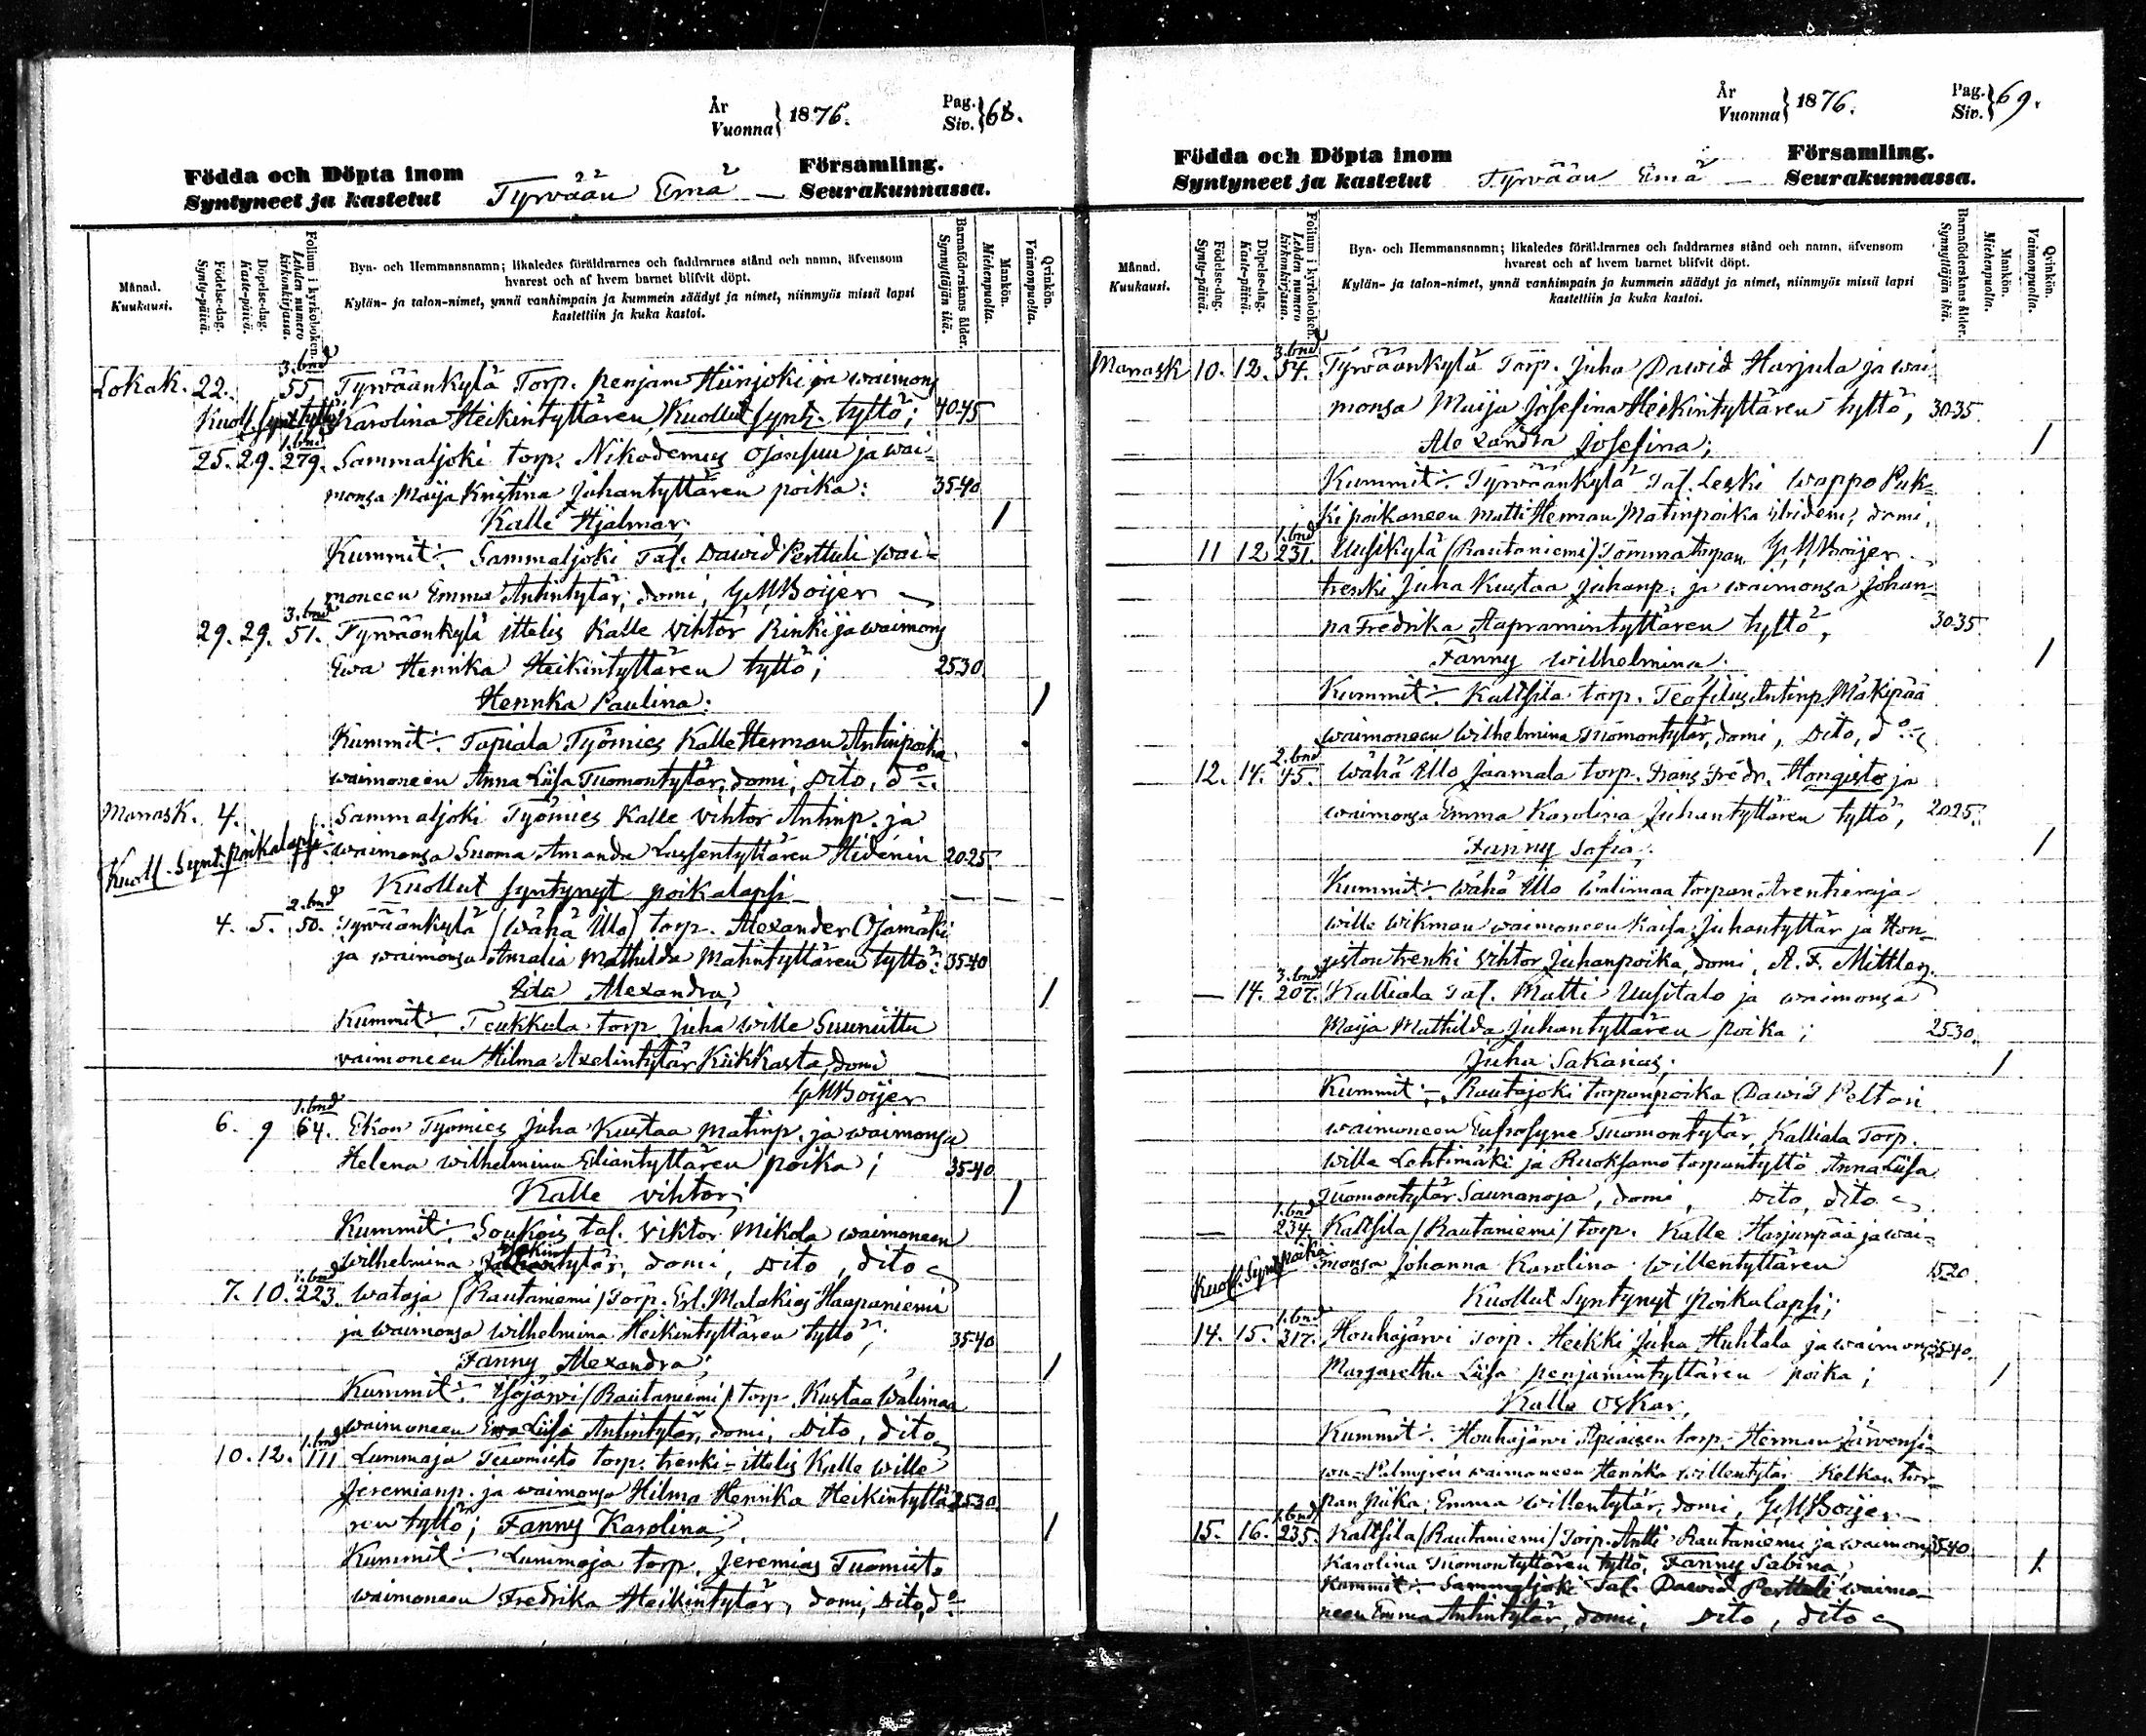 År
Vuonna } 1876.
Pag.
Siv. } 68.
Födda och Döpta inom
Syntyneet ja kastetut
Tyrvään Emä —
Församling.
Seurakunnassa.
Månad.
Kuukausi.
Födelse-dag.
Synty-päivä.
Döpelse-dag.
Kaste-päivä.
Folium i kyrkoboken.
Lehden numero kirkonkirjassa.
Byn- och Hemmansnamn; likaledes föräldrarnes och faddrarnes stånd och namn, äfvensom
hvarest och af hvem barnet blifvit döpt.
Kylän- ja talon-nimet, ynnä vanhimpain ja kummein säädyt ja nimet, niinmyös missä lapsi
kastettiin ja kuka kastoi.
Barnaföderskans ålder.
Synnyttäjän ikä.
Mankön.
Miehenpuolta.
Qvinkön.
Vaimonpuolta.
3. bnd
Lokak. 22. 55 Tyrväänkylä Torp. penjam Hiirijoki ja waimons
Kuoll. synt. tyttö Karolina Heikintyttären Kuollut synt. tyttö; 40-45
1. bnd
25. 29. 279. Sammaljoki torp. Nikodemus Ojansuu ja wai-
monsa Maija Kristina Juhantyttären poika: 35-40
Kalle Hjalmar; /
Kummit:- Sammaljoki Tal. Dawid Perttuli wai-
moneen Emma Antintytär, domi, G M Boijer
3. bnd
29. 29. 51. Tyrväänkylä ittelis Kalle Vihtor Rinki ja waimons
Ewa Henrika Heikintyttären tyttö; 2530.
Henrika Paulina: /
Kummit:- Tapiala Työmies Kalle Herman Antinpoika
waimoneen Anna Liisa Tuomontytär, domi, dito, do.
Marrask. 4. Sammaljoki Työmies Kalle vihtor Antinp. ja
Kuoll. Synt. poikalapsi waimonsa Suoma Amanda Lassentyttären Hidenin 20-25.
Kuollut syntynyt poikalapsi
2. bnd
4. 5. 50. Tyrväänkylä (Wähä Ulo) torp. Alexander Ojamäki
ja waimonsa Amalia Mathilda Matintyttären tyttö: 35-40
Ida Alexandra, /
Kummit:- Teukkula torp Juha Wille Suuniittu
vaimoneen Hilma Axelintytär Kiikkasta, domi
G M Boijer
1. bnd
6. 9 64. Ekon Työmies Juha Kustaa Matinp. ja waimonsa
Helena Wilhelmina Eliantyttären poika; 35-40
Kalle vihtor; /
Kummit:- Soukois tal. Viktor Mikola waimoneen
Wilhelmina tytär, domi, dito, dito
1. bnd
7. 10. 223. Wataja (Rautaniemi) Torp. Erl. Malakias Haapaniemi
ja waimonsa Wilhelmina Heikintyttären tyttö; 35-40
Fanny Alexandra; /
Kummit:- Yöjärwi (Rautaniemi) torp. Kustaa Wälimaa
waimoneen Ewa Liisa Antintytär, domi, dito, dito
1. bnd
10. 12. 111 Lummaja Tuomisto torp. trenki-ittelis Kalle Wille
Jeremianp. ja waimonsa Hilma Henrika Heikintyttä- 2530.
ren tyttö; Fanny Karolina; /
Kummit:- Lummaja torp. Jeremias Tuomisto
waimoneen Fredrika Heikintytär, domi, dito, do
År
Vuonna } 1876.
Pag.
Siv. } 69.
Födda och Döpta inom
Syntyneet ja kastetut
Tyrvään Emä —
Församling.
Seurakunnassa.
Månad.
Kuukausi.
Födelse-dag.
Synty-päivä.
Döpelse-dag.
Kaste-päivä.
Folium i kyrkoboken.
Lehden numero kirkonkirjassa.
Byn- och Hemmansnamn; likaledes föräldrarnes och faddrarnes stånd och namn, äfvensom
hvarest och af hvem barnet blifvit döpt.
Kylän- ja talon-nimet, ynnä vanhimpain ja kummein säädyt ja nimet, niinmyös missä lapsi
kastettiin ja kuka kastoi.
Barnaföderskans ålder.
Synnyttäjän ikä.
Mankön.
Miehenpuolta.
Qvinkön.
Vaimonpuolta.
3. bnd
Marrask 10. 12. 54. Tyrväänkylä Torp. Juha Dawid Harjula ja wai
monsa Maija Josefina Heikintyttären tyttö, 3035
Alexandra Josefina; /
Kummit:- Tyrväänkylä Tal. Leski Wappo Puk-
ki poikaneen Matti Herman Matinpoika ibidem, domi,
1. bnd
11 12 231. Uusikylä (Rautaniemi) Tömmä torpan G M Boijer
trenki Juha Kustaa Juhanp. ja waimonsa Johan-
na Fredrika Aapramintyttären tyttö, 3035
Fanny Wilhelmina. /
Kummit:- Kaltsila torp. Teofilus Antinp. Mäkipää
waimoneen Wilhelmina Tuomontytär, domi, dito, do
2. bnd
12. 14. 45. Wähä Ulo Jaamala torp. Frans Fredr. Hongisto ja
waimonsa Emma Karolina Juhantyttären tyttö, 2025.
Fanny Sofia; /
Kummit:- Wähä Ulo Wälimaa torpan Arentieraja
Wille Wikman waimoneen Kaisa Juhantyttär ja Hon-
giston trenki Vihtor Juhanpoika, domi, A. F. Mittler.
3. bnd
— 14. 207. Kalliala Tal. Matti Uusitalo ja waimonsa
Maija Mathilda Juhantyttären poika; 2530.
Juha Sakarias; /
Kummit:- Rautajoki torpanpoika Dawid Peltari
waimoneen Eufrosyne Tuomontytär, Kalliala Torp.
Wille Lehtimäki ja Ruoksamo torpantyttö Anna Liisa
Tuomontytär Saunanoja, domi, dito, dito
1. bnd
— 234. Kaltsila (Rautaniemi) torp. Kalle Harjunpää ja wai-
Kuoll. Synt. poika monsa Johanna Karolina Willentyttären 1520
Kuollut Syntynyt Poikalapsi;
1. bnd
14. 15. 317. Houhajärvi Torp. Heikki Juha Huhtala ja waimons 3540.
Margaretha Liisa penjamintyttären poika; /
Kalle Oskar,
Kummit:- Houhajärvi Piiaisen torp. Herman Järvensi-
wu-Palmgren waimoneen Henrika Willentytär Kelkan tor-
pan piika Emma Willentytär, domi, G M Boijer
1. bnd
15. 16. 235. Kaltsila (Rautaniemi) Torp. Antti Rautaniemi ja waimons 3540
Karolina Tuomontyttären tyttö, Fanny Sabina, /
Kummit:- Sammaljoki Tal. Dawid Perttuli waimo-
neen Emma Antintytär, domi, dito, dito